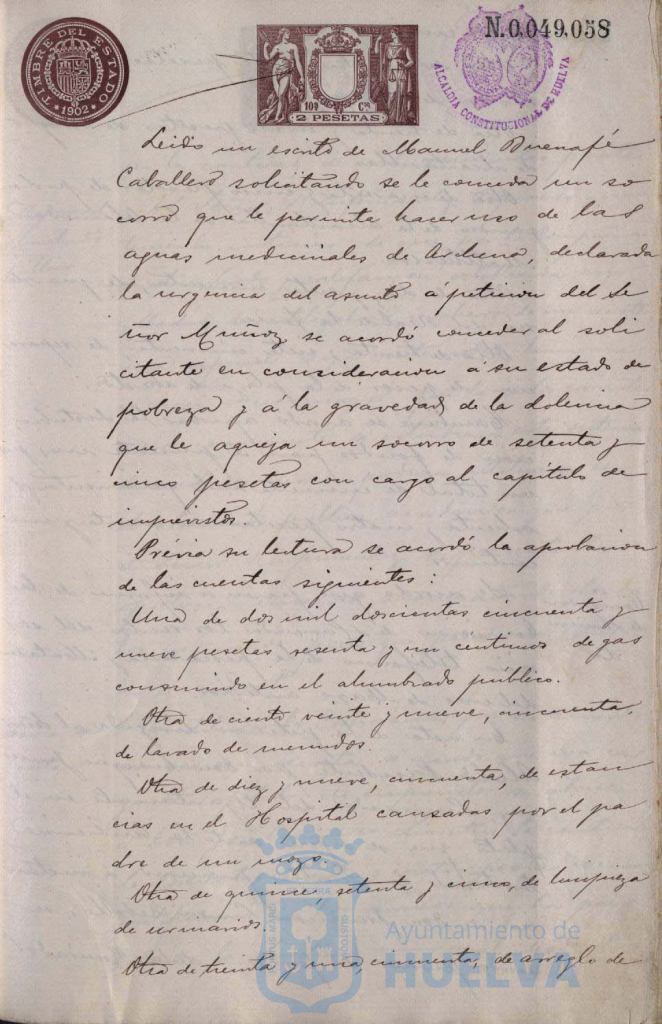 TIMBRE DEL ESTADO
* 1902 *
10ª Cse
2 PESETAS
N.0.049.058
ALCALDIA CONSTITUCIONAL DE HUELVA
Leido un escrito de Manuel Buenafé
Caballero solicitando se le conceda un so
corro que le permita hacer uso de las
aguas medicinales de Archena, declarada
la urgencia del asunto á peticion del Se
ñor Muñoz se acordó conceder al soli
citante en consideracion á su estado de
pobreza y á la gravedad de la dolencia
que le aqueja un socorro de setenta y
cinco pesetas con cargo al capitulo de
imprevistos.
Prévia su lectura se acordó la aprobacion
de las cuentas siguientes:
Una de dos mil doscientas cincuenta y
nueve pesetas sesenta y un centimos de gas
consumido en el alumbrado público.
Otra de ciento veinte y nueve, cincuenta,
de lavado de menudos.
Otra de diez y nueve, cincuenta, de estan
cias en el Hospital causadas por el pa
dre de un mozo.
Otra de quince, setenta y cinco, de limpieza
de urinarios.
Otra de treinta y una, cincuenta, de arreglo de
Ayuntamiento de
HUELVA